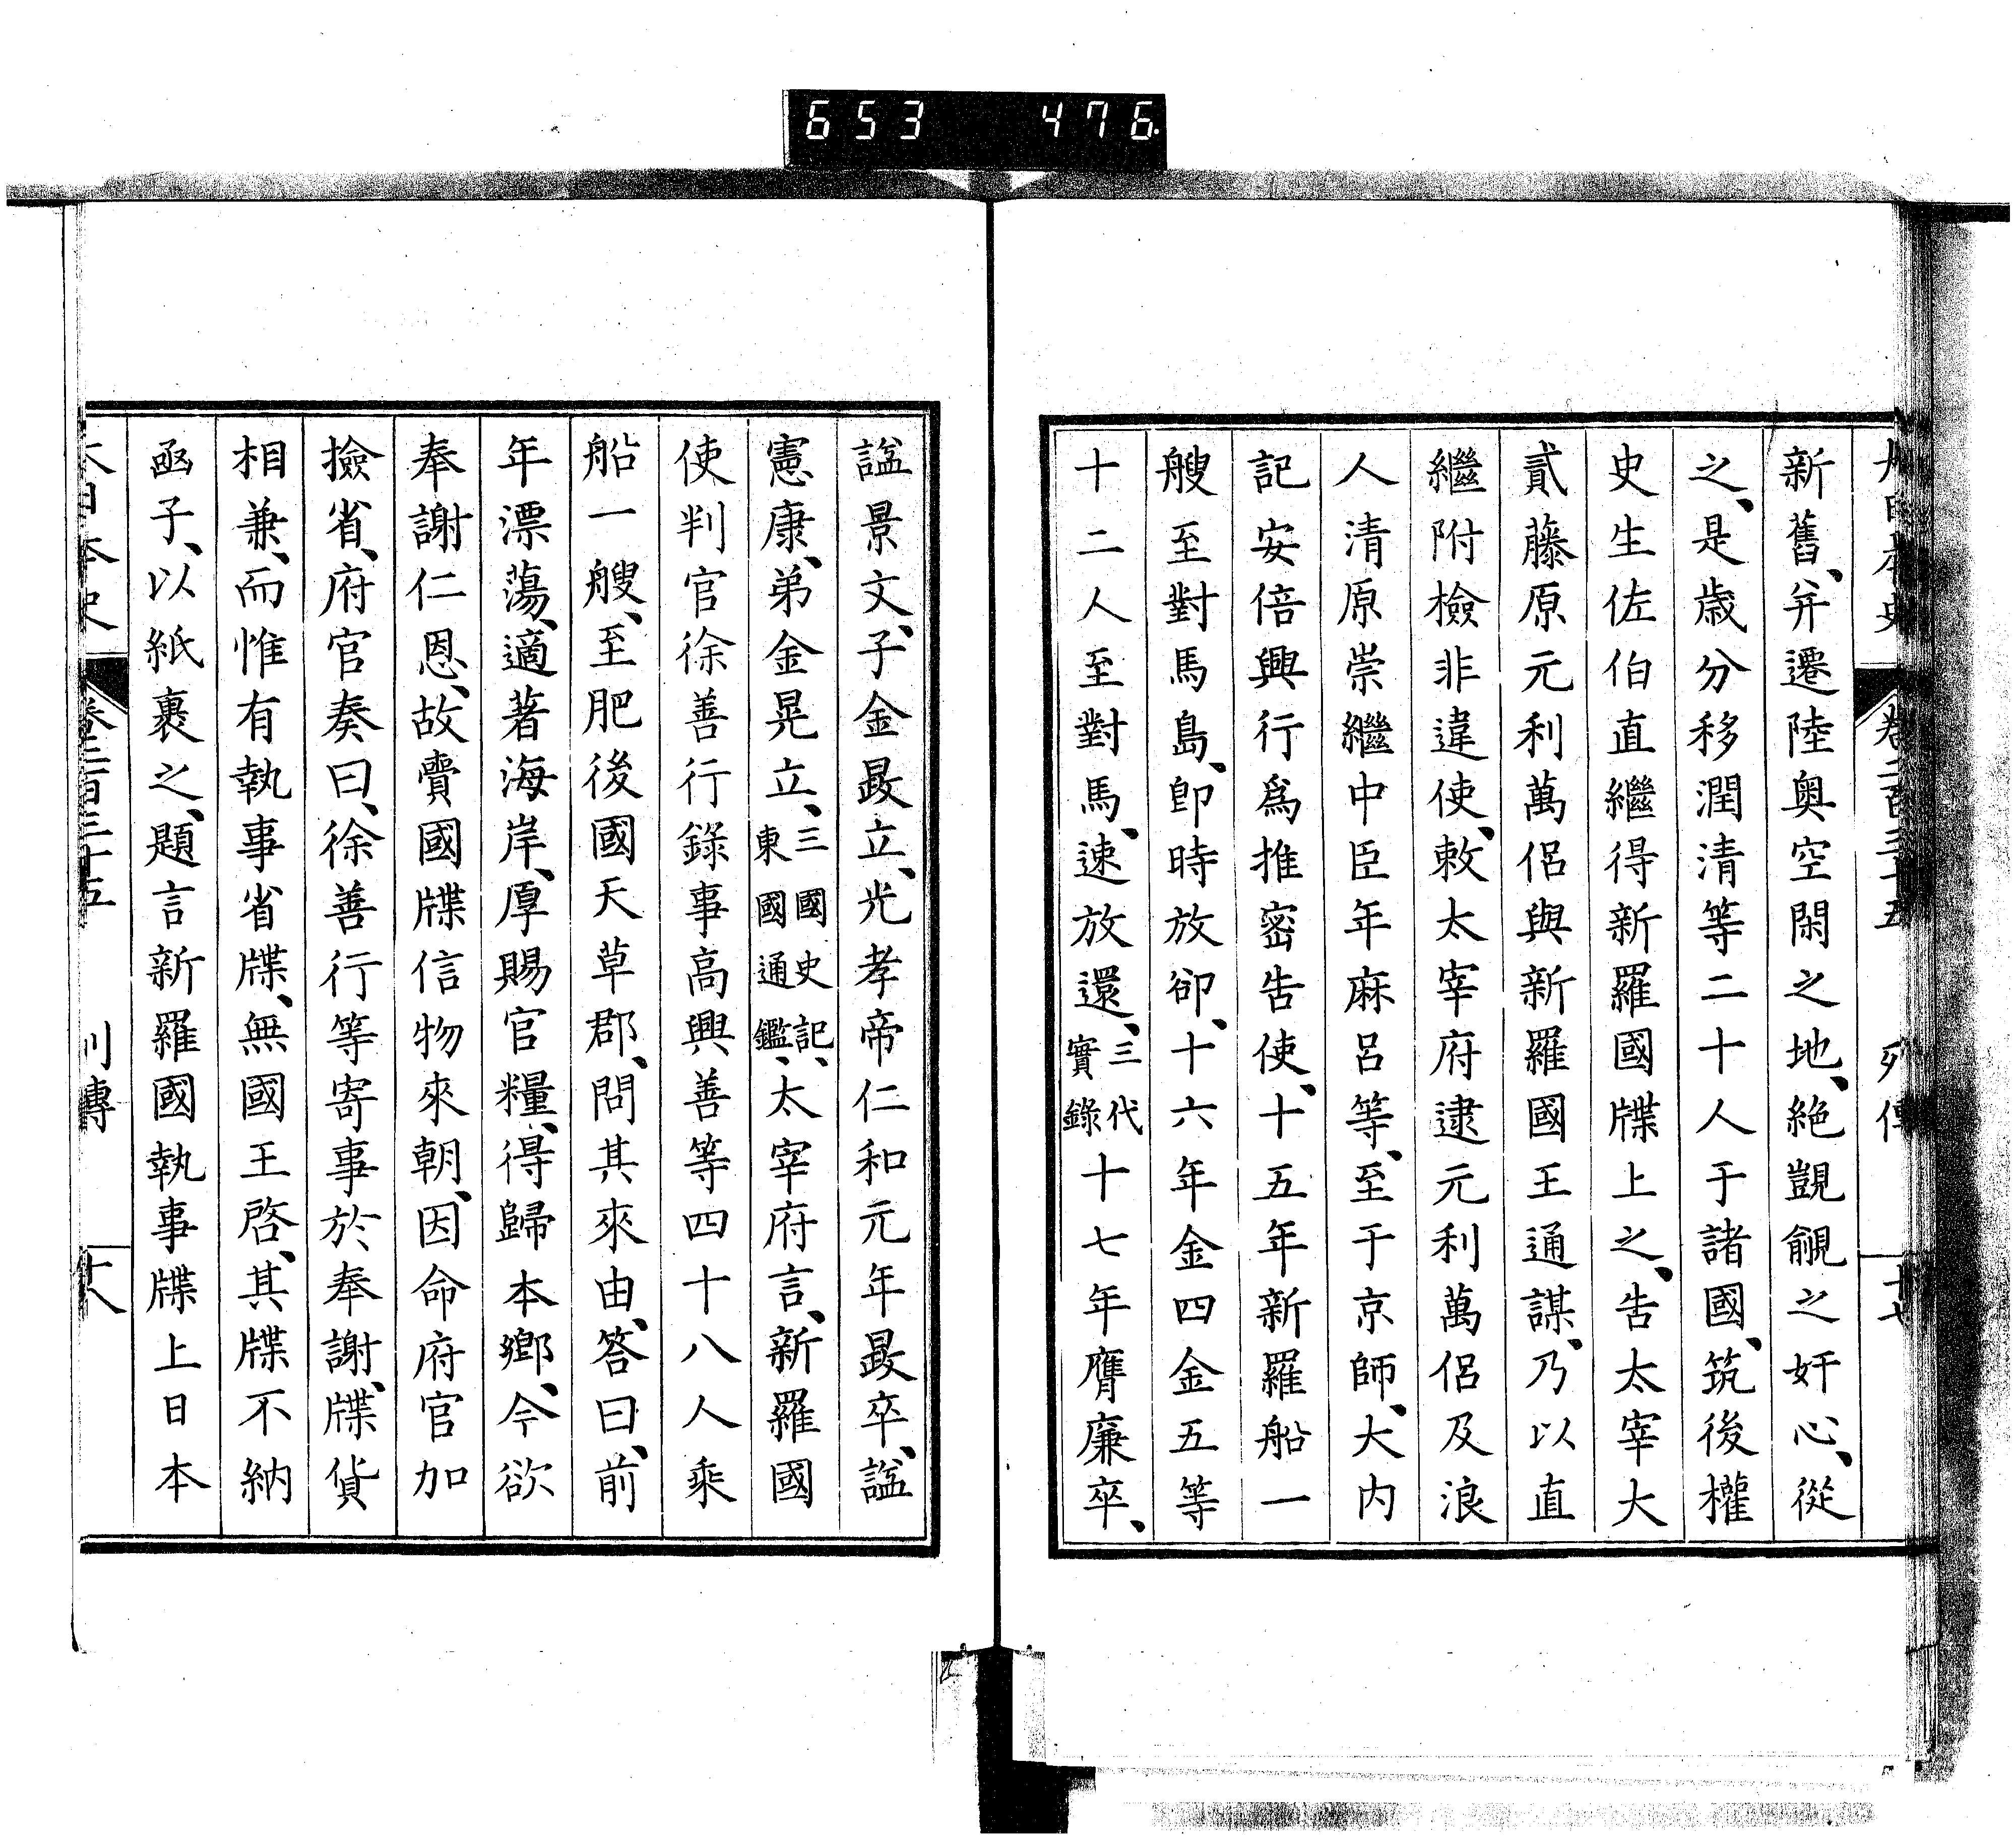 653 476
大日本史 卷二百三十五 列傳 十七
新舊、并遷陸奧空閑之地、絕覬覦之奸心、從
之、是歲分移潤清等二十人于諸國、筑後權
史生佐伯直繼得新羅國牒上之、告太宰大
貳藤原元利萬侶與新羅國王通謀、乃以直
繼附檢非違使、敕太宰府逮元利萬侶及浪
人清原崇繼中臣年麻呂等、至于京師、大內
記安倍興行爲推密告使、十五年新羅船一
艘至對馬島、卽時放卻、十六年金四金五等
十二人至對馬、速放還、三代實錄十七年膺廉卒、
諡景文、子金晸立、光孝帝仁和元年晸卒、諡
憲康、弟金晃立、三國史記、東國通鑑、太宰府言、新羅國
使判官徐善行錄事高興善等四十八人乘
船一艘、至肥後國天草郡、問其來由、答曰、前
年漂蕩、適著海岸、厚賜官糧、得歸本鄉、今欲
奉謝仁恩、故賷國牒信物來朝、因命府官加
撿省、府官奏曰、徐善行等寄事於奉謝、牒貨
相兼、而惟有執事省牒、無國王啓、其牒不納
函子、以紙裹之、題言新羅國執事牒上日本
大日本史 卷二百三十五 列傳 十八